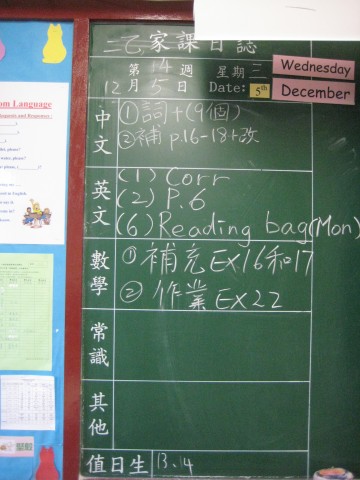 三乙家課日誌
第14週 星期三 Wednesday
12月5日 Date: 5th December
中文
①詞+(9個)
②補 p.16-18+改
英文
(1) Corr
(2) P.6
(6) Reading bag(Mon)
數學
①補充EX16和17
②作業EX22
常識
其他
值日生 13.14
am Language